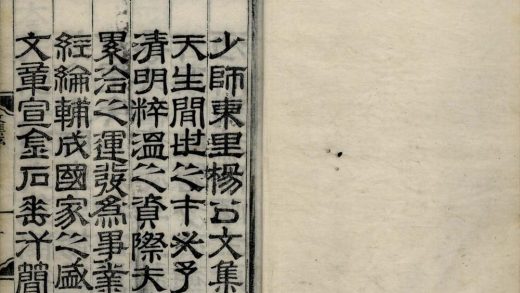 少師東里楊公文集
天生間世之才必予
清明粹溫之資際夫
累洽之運發爲事業
經綸輔成國家之盛
文章宣金石垂汗簡